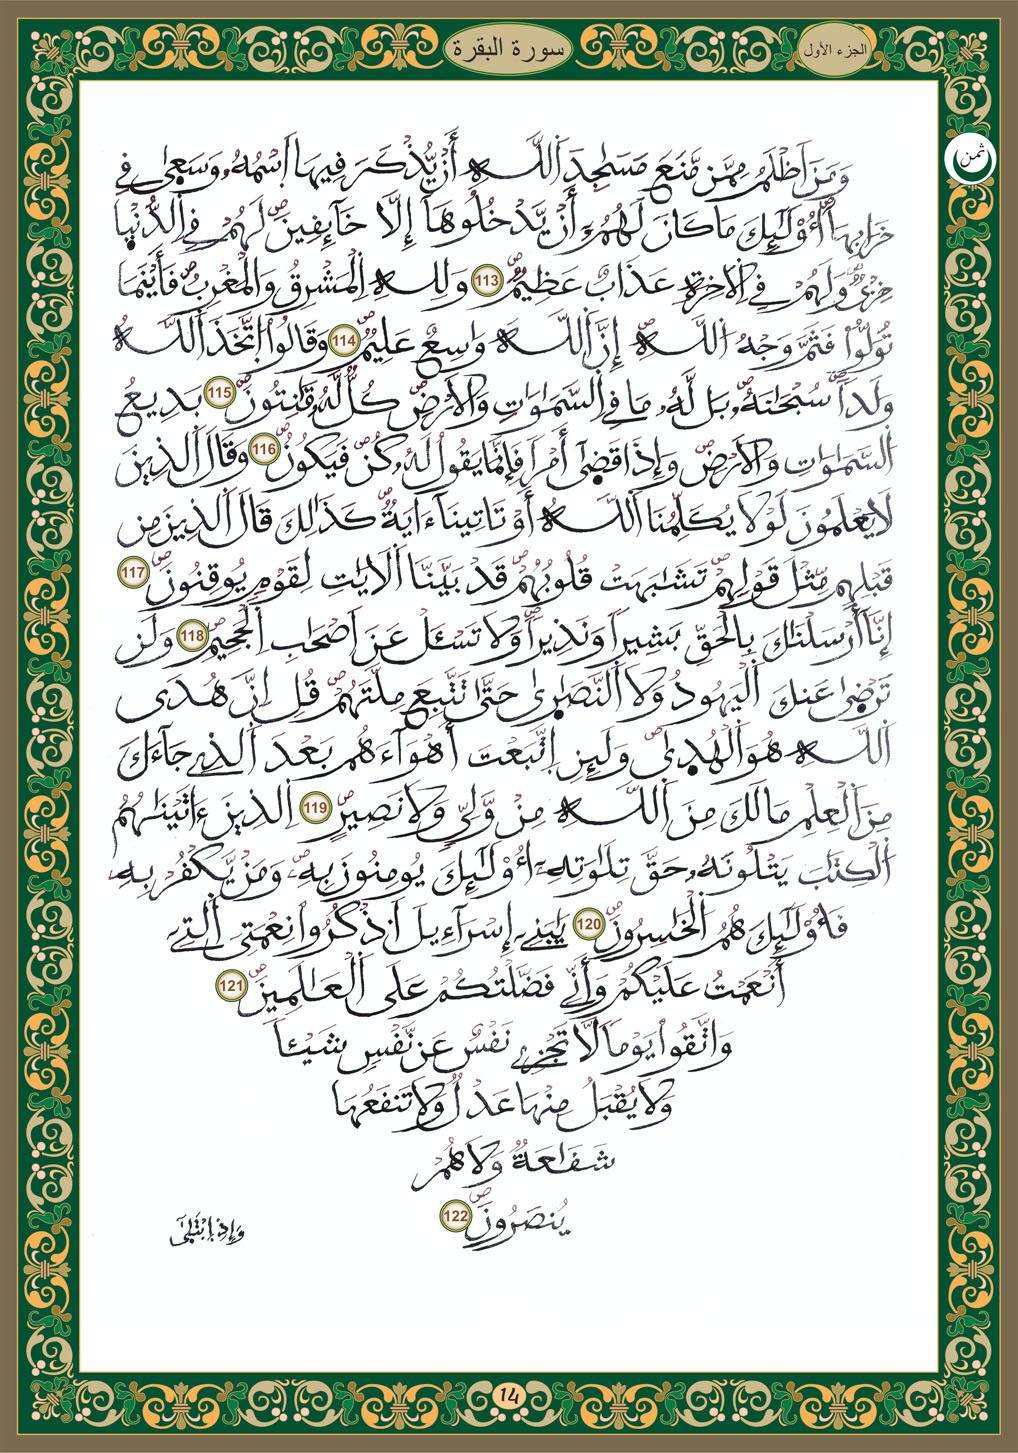 الجزء الأول
سورة البقرة
ثمن
وَمَنَ اَظْلَمُ مِمَّن مَّنَعَ مَسَٰجِدَ اَ۬للَّهِ أَنْ يُّذْكَرَ فِيهَا اَ۪سْمُهُۥ وَسَع۪ىٰ فِے
خَرَابِهَآ أُوْلَٰٓئِكَ مَا كَانَ لَهُمُۥٓ أَنْ يَّدْخُلُوهَآ إِلَّا خَآئِفِينَۖ لَهُمْ فِے اِ۬لدُّنْي۪ا
خِزْيٞۖ وَلَهُمْ فِے اِ۬لَاخِرَةِ عَذَابٌ عَظِيمٞۖ 113 وَلِلهِ اِ۬لْمَشْرِقُ وَالْمَغْرِبُۖ فَأَيْنَمَا
تُوَلُّواْ فَثَمَّ وَجْهُ اُ۬للَّهِۖ إِنَّ اَ۬للَّهَ وَٰسِعٌ عَلِيمٞۖ 114 وَقَالُواْ اُ۪تَّخَذَ اَ۬للَّهُ
وَلَداٗۖ سُبْحَٰنَهُۥۖ بَل لَّهُۥ مَا فِے اِ۬لسَّمَٰوَٰتِ وَالَارْضِۖ كُلّٞ لَّهُۥ قَٰنِتُونَۖ 115 بَدِيعُ
اُ۬لسَّمَٰوَٰتِ وَالَارْضِۖ وَإِذَا قَض۪ىٰٓ أَمْراٗ فَإِنَّمَا يَقُولُ لَهُۥ كُنۖ فَيَكُونُۖ 116 وَقَالَ اَ۬لذِينَ
لَا يَعْلَمُونَ لَوْلَا يُكَلِّمُنَا اَ۬للَّهُ أَوْ تَاتِينَآ ءَايَةٞۖ كَذَٰلِكَ قَالَ اَ۬لذِينَ مِن
قَبْلِهِم مِّثْلَ قَوْلِهِمْۖ تَشَٰبَهَتْ قُلُوبُهُمْۖ قَدْ بَيَّنَّا اَ۬لَايَٰتِ لِقَوْمٖ يُوقِنُونَۖ 117
إِنَّآ أَرْسَلْنَٰكَ بِالْحَقِّ بَشِيراٗ وَنَذِيراٗۖ وَلَا تَسْـَٔلْ عَنَ اَصْحَٰبِ اِ۬لْجَحِيمِۖ 118 وَلَن
تَرْض۪ىٰ عَنكَ اَ۬لْيَهُودُ وَلَا اَ۬لنَّصَٰر۪ىٰ حَتَّىٰ تَتَّبِعَ مِلَّتَهُمْۖ قُلِ اِنَّ هُدَى
اَ۬للَّهِ هُوَ اَ۬لْهُد۪ىٰۖ وَلَئِنِ اِ۪تَّبَعْتَ أَهْوَآءَهُم بَعْدَ اَ۬لذِے جَآءَكَ
مِنَ اَ۬لْعِلْمِ مَا لَكَ مِنَ اَ۬للَّهِ مِنْ وَّلِيّٖ وَلَا نَصِيرٍۖ 119 اِ۬لذِينَ ءَاتَيْنَٰهُمُ
اُ۬لْكِتَٰبَ يَتْلُونَهُۥ حَقَّ تِلَٰوَتِهِۦٓ أُوْلَٰٓئِكَ يُومِنُونَ بِهِۦۖ وَمَنْ يَّكْفُرْ بِهِۦ
فَأُوْلَٰٓئِكَ هُمُ اُ۬لْخَٰسِرُونَۖ 120 يَٰبَنِےٓ إِسْرَآءِيلَ اَ۟ذْكُرُواْ نِعْمَتِيَ اَ۬لتِےٓ
أَنْعَمْتُ عَلَيْكُمْ وَأَنِّے فَضَّلْتُكُمْ عَلَى اَ۬لْعَٰلَمِينَۖ 121
وَاتَّقُواْ يَوْماٗ لَّا تَجْزِے نَفْسٌ عَن نَّفْسٖ شَيْـٔاٗ
وَلَا يُقْبَلُ مِنْهَا عَدْلٞ وَلَا تَنفَعُهَا
شَفَٰعَةٞ وَلَا هُمْ
يُنصَرُونَۖ 122
وَإِذِ اِ۪بْتَلَىٰٓ
14